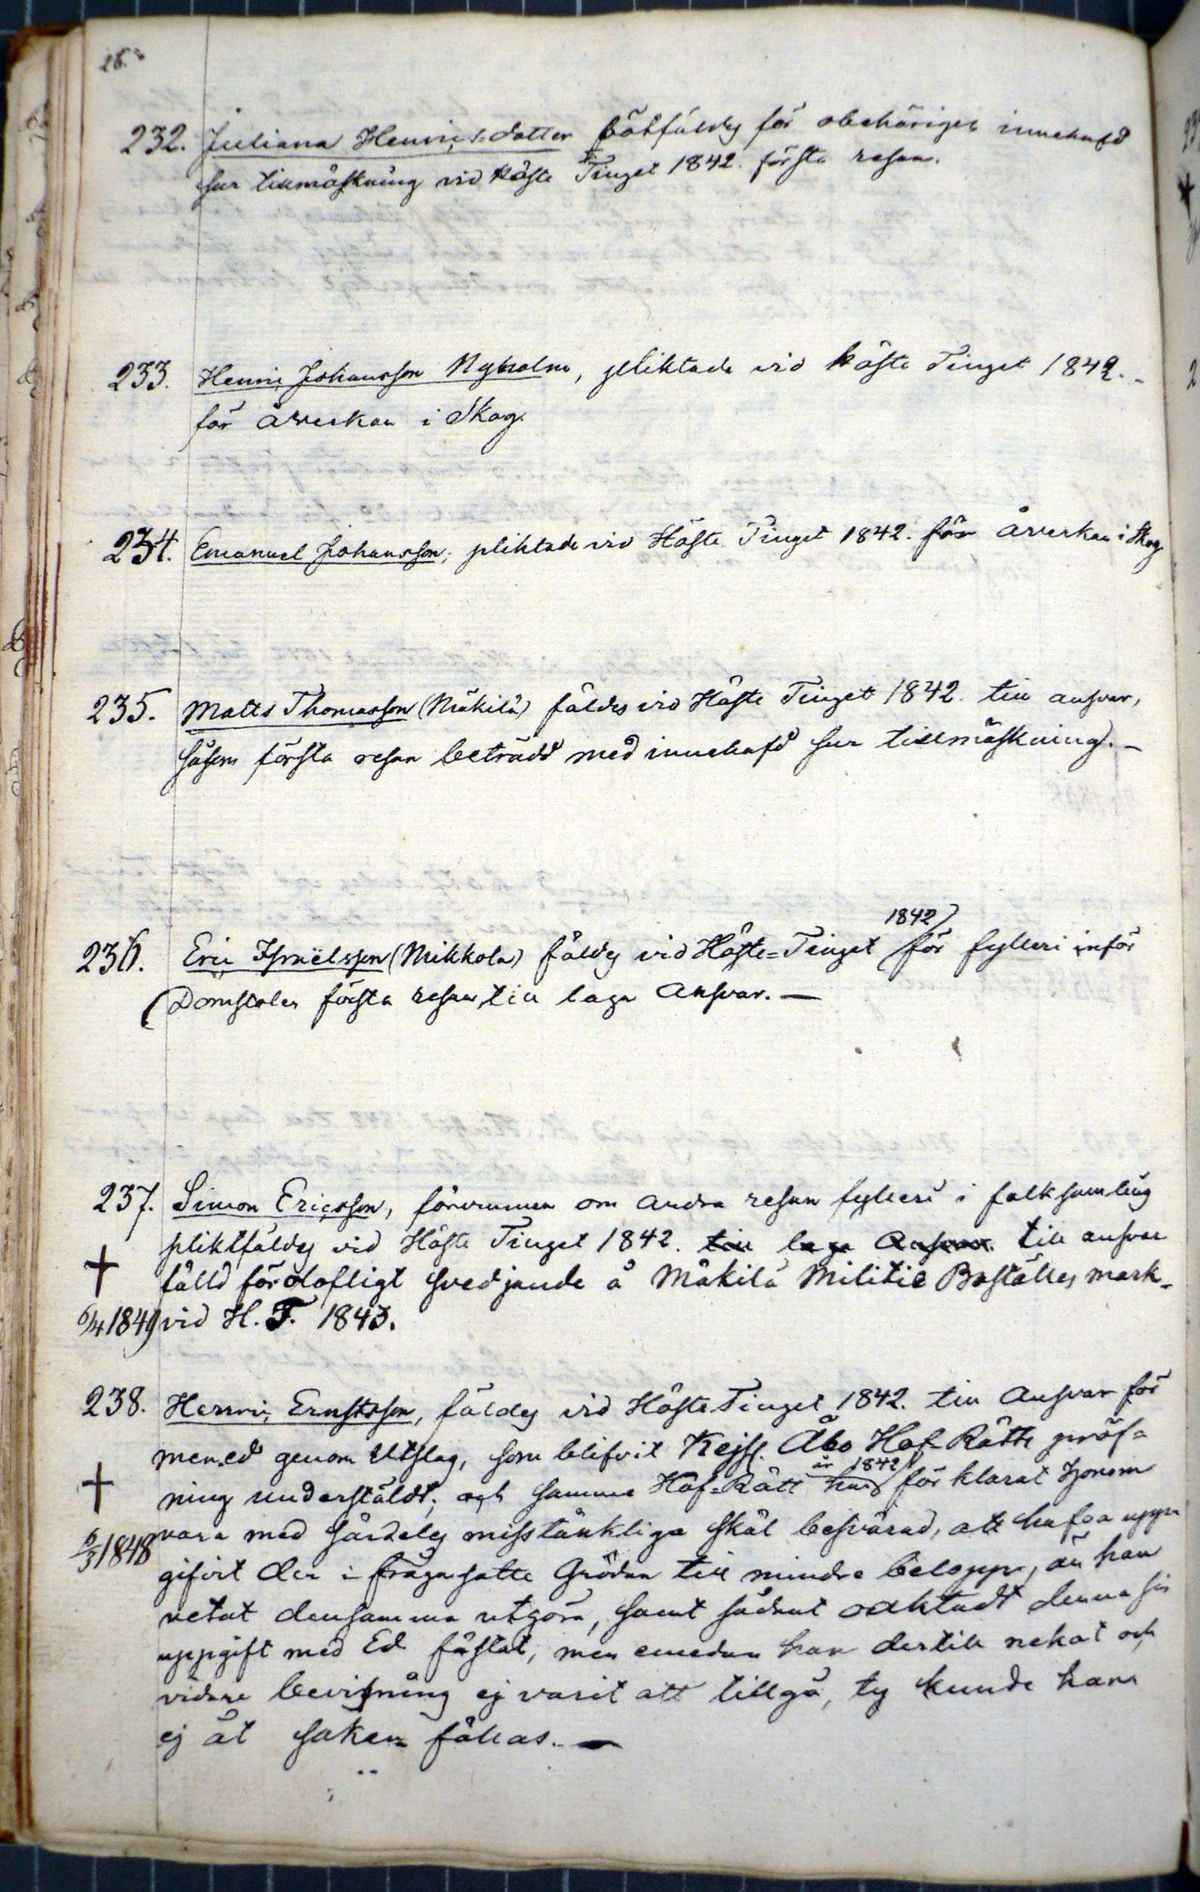 232. Juliana Henricsdotter bötfäldes för obehörigen innehafd
sur tillmäskning vid Höste Tinget 1842. första resan.
233. Henric Johansson Nyholm, pliktade vid Höste Tinget 1842. -
för åverkan i Skog.
234. Emanuel Johansson, pliktade vid Höste Tinget 1842. för åverkan i Skog
235. Matts Thomasson (Mäkilä) fäldes vid Höste Tinget 1842. till ansvar,
såsom första resan beträdd med innehafd sur tillmäskning. -
1842
236. Eric Israëlsson (Mikkola) fäldes vid Höste=Tinget för fylleri inför
Domstolen första resan, till laga Ansvar. -
237. Simon Ericsson, förvunnen om andra resan fylleri i folksamling
pliktfäldes vid Höste Tinget 1842. till laga Ansvar. till ansvar
† fälld för olofligt svedjande å Mäkilä Militie Boställes mark -
6/4 1849 vid H. T. 1843.
238. Henric Ernstsson, fäldes vid Höste Tinget 1842. till Ansvar för
mened genom Utslag, som blifvit Kejs. Åbo Hof-Rätts pröf=
är 1842
† ning underställdt; och samma Hof=Rätt har förklarat honom
5/3 1848 vara med särdeles misstänkliga skäl besvärad, att hafva uppe
gifvit den i fråga satte Gröden till mindre belopp, än han
vetat densamma utgöra, samt sådant oaktadt denna sin
uppgift med Ed fästat, men emedan han dertill nekat och
vidare bevisning ej varit att tillgå, ty kunde han
ej åt saken fällas. -